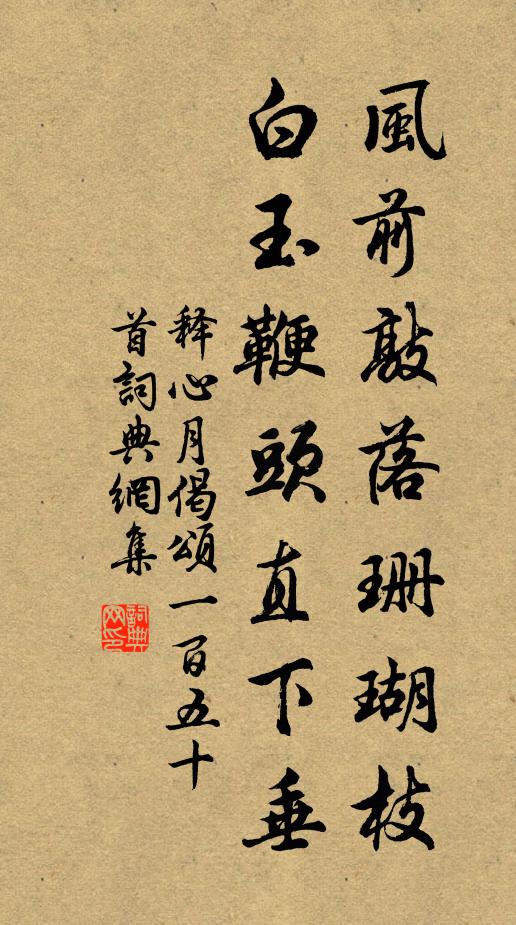 風前敲落珊瑚枝
白玉鞭頭直下垂
释心月偈頌一百五十
首詞典網集
詞典
网印